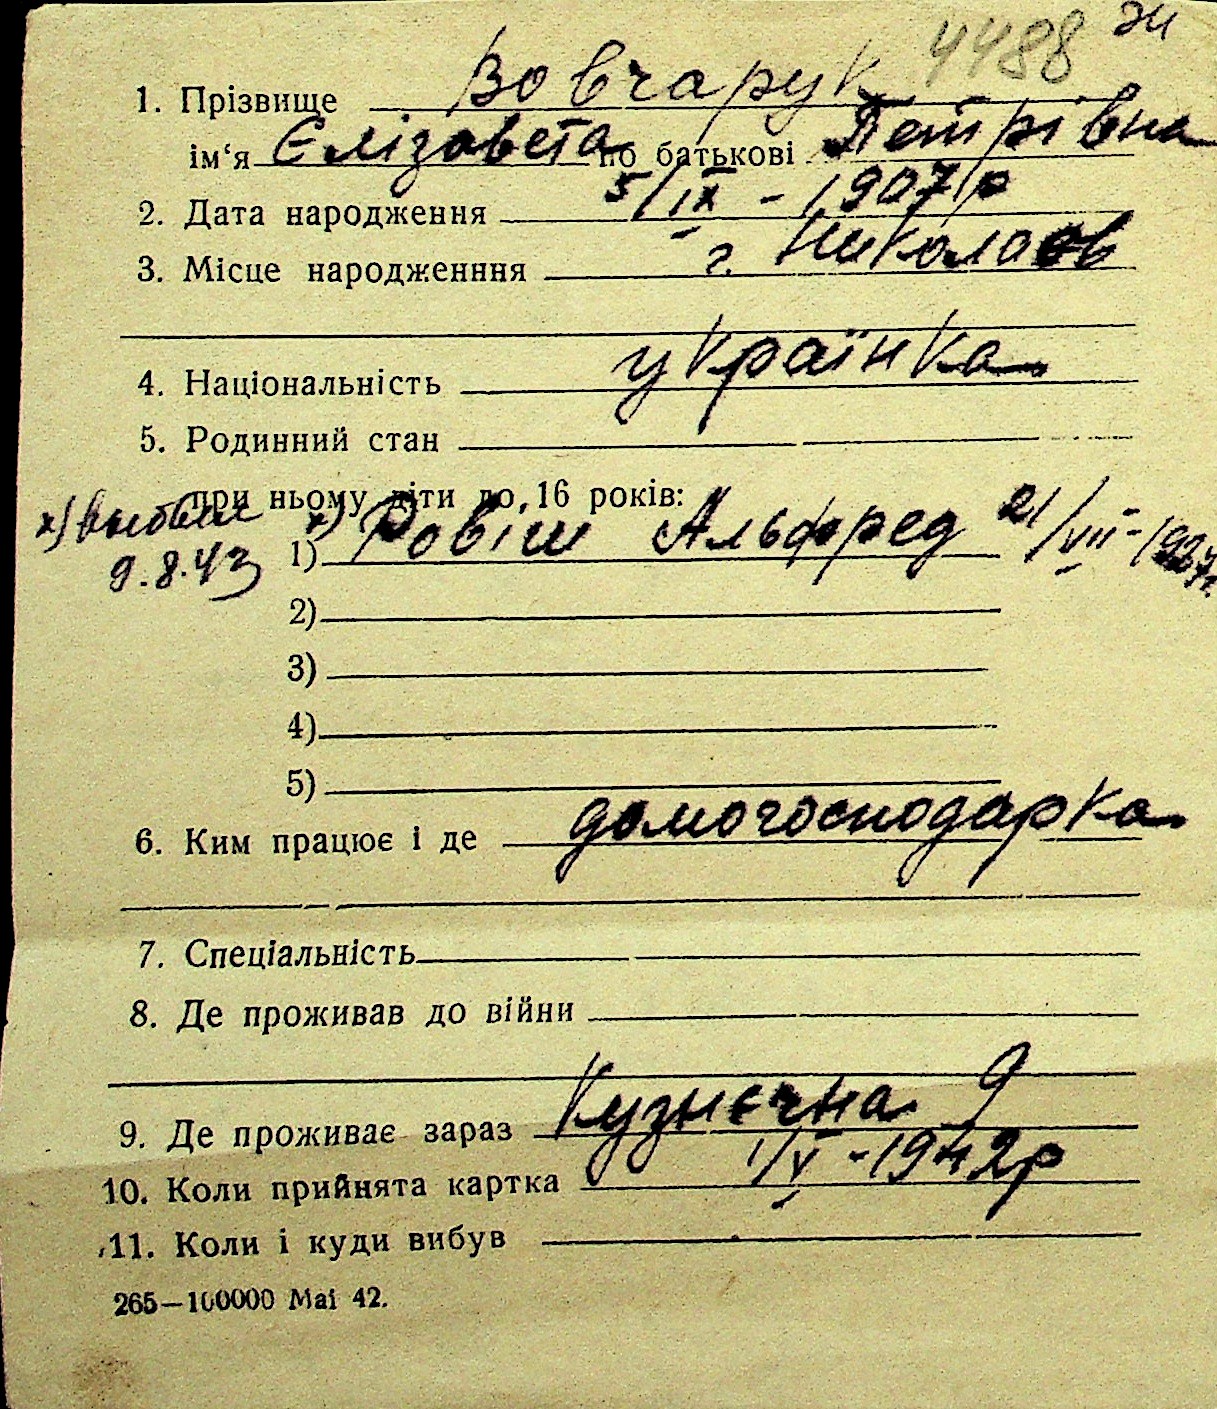 4488 эи
1. Прізвище Вовчарук
ім‘я Єлізавета по батькові Петрівна
2. Дата народження 5/ІХ - 1907 р
3. Місце народженння г. Николаев
4. Національність українка
5. Родинний стан
при ньому діти до 16 років:
х) выбыл 9.8.43
х) 1) Ровіш Альфред 21/VII - 1927 г.
2)
3)
4)
5)
6. Ким працює і де домогосподарка
7. Спеціальність
8. Де проживав до війни
9. Де проживає зараз Кузнєчна 9
10. Коли прийнята картка 1/V - 1942 р
11. Коли і куди вибув
265—100000 Маі 42.